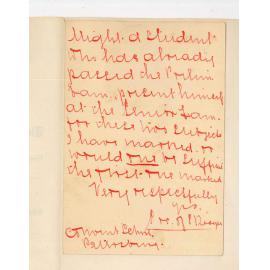 Might a student
who has already
passed the Prelim
Exam., present himself
at the Senior Exam.
for these two subjects
I have marked. or
would one be suffici
the first one marked
Very respectfully
yrs.
Convent School